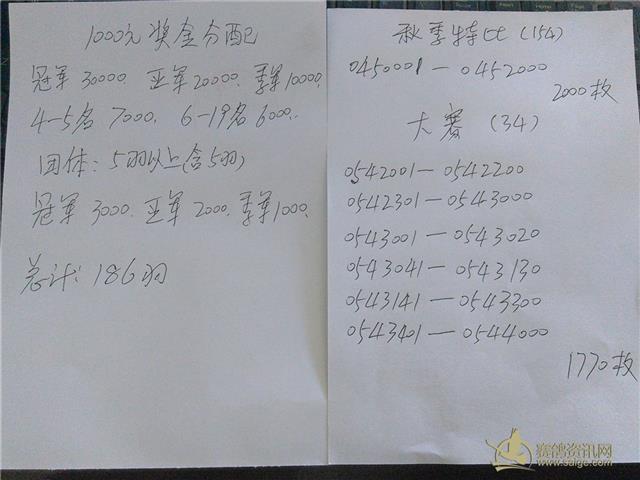 1000元奖金分配
冠军 30000. 亚军 20000. 季军 10000.
4-5名 7000. 6-19名 6000.
团体: 5羽以上(含5羽)
冠军 3000. 亚军 2000. 季军 1000.
总计: 186羽
秋季特比 (154)
0450001 — 0452000
2000枚
大赛 (34)
0542001 — 0542200
0542301 — 0543000
0543001 — 0543020
0543041 — 0543130
0543141 — 0543300
0543401 — 0544000
1770枚
赛鸽资讯网
www.saige.com